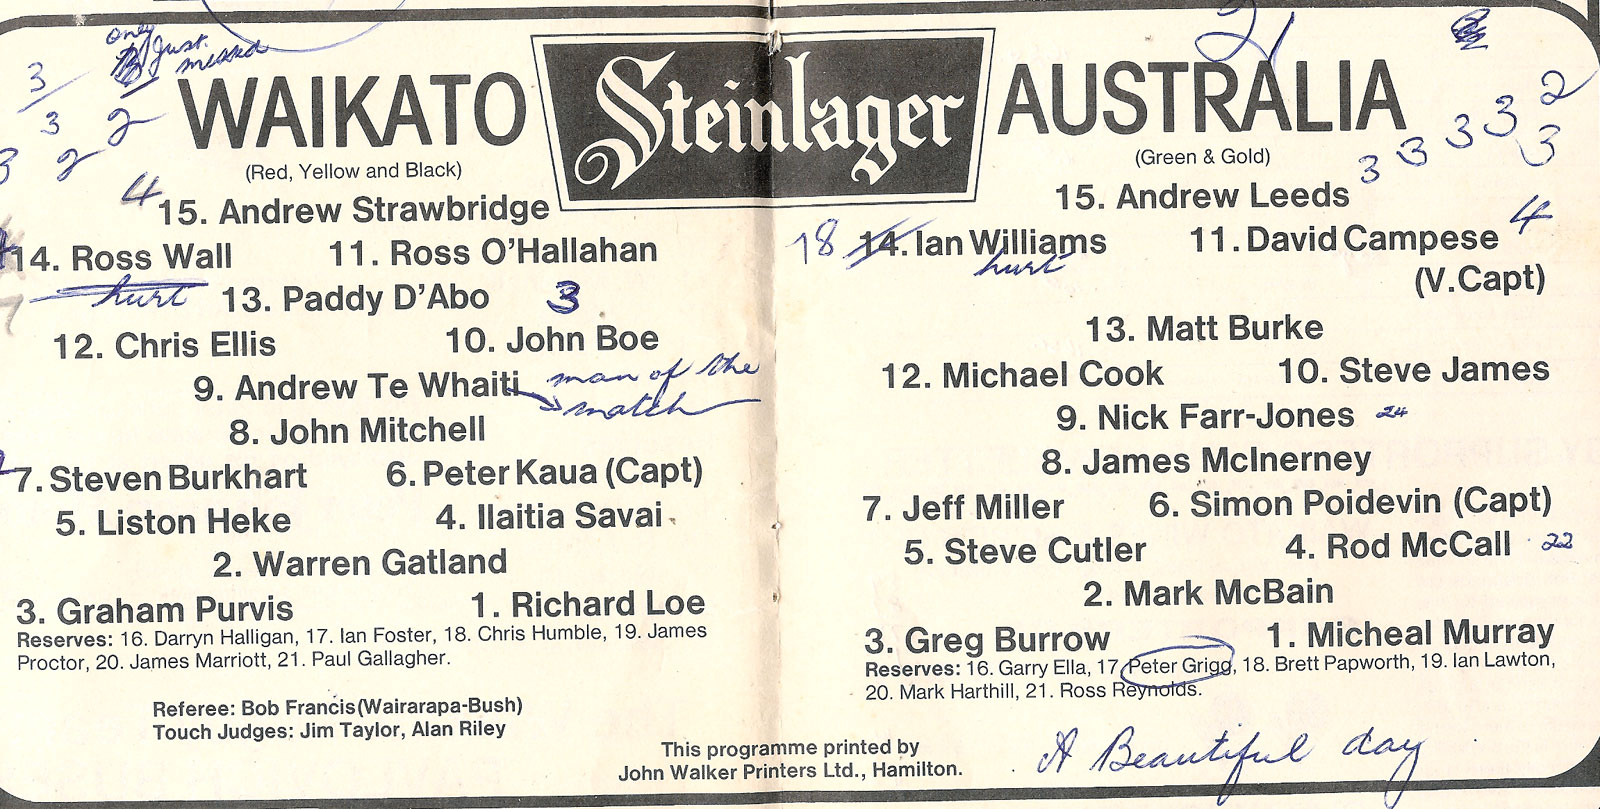 only
just
missed
3
3 2
3 2
WAIKATO
(Red, Yellow and Black)
4
15. Andrew Strawbridge
14. Ross Wall 11. Ross O'Hallahan
hurt 13. Paddy D'Abo 3
12. Chris Ellis 10. John Boe
9. Andrew Te Whaiti man of the
match
8. John Mitchell
7. Steven Burkhart 6. Peter Kaua (Capt)
5. Liston Heke 4. Ilaitia Savai
2. Warren Gatland
3. Graham Purvis 1. Richard Loe
Reserves: 16. Darryn Halligan, 17. Ian Foster, 18. Chris Humble, 19. James
Proctor, 20. James Marriott, 21. Paul Gallagher.
Referee: Bob Francis (Wairarapa-Bush)
Touch Judges: Jim Taylor, Alan Riley
Steinlager
21
AUSTRALIA
(Green & Gold)
3 3 3 3 2
3
15. Andrew Leeds
18 14. Ian Williams 11. David Campese 4
hurt (V.Capt)
13. Matt Burke
12. Michael Cook 10. Steve James
9. Nick Farr-Jones 24
8. James McInerney
7. Jeff Miller 6. Simon Poidevin (Capt)
5. Steve Cutler 4. Rod McCall 22
2. Mark McBain
3. Greg Burrow 1. Micheal Murray
Reserves: 16. Garry Ella, 17. Peter Grigg, 18. Brett Papworth, 19. Ian Lawton,
20. Mark Harthill, 21. Ross Reynolds.
A Beautiful day
This programme printed by
John Walker Printers Ltd., Hamilton.